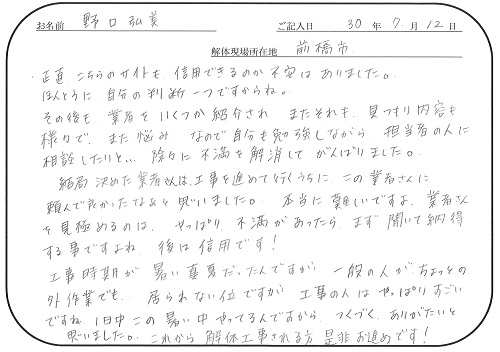 お名前 野口弘美 ご記入日 30年7月12日
解体現場所在地 前橋市
・正直こちらのサイトも、信用できるのか不安はありました。
ほんとうに自分の判断一つですからね。
その後も業者をいくつか紹介され またそれも、見つもり内容も
様々で、また悩み なので自分も勉強しながら 担当者の人に
相談したりと… 除々に不満を解消して がんばりました。
結局 決めた業者さんは、工事を進めて行くうちに、この業者さんに
頼んで良かったなぁと思いました。本当に難しいですよ、業者さん
を見極めるのは、やっぱり 不満があったら、まず聞いて納得
する事ですよね 後は信用です!
工事時期が暑い真夏だったんですが 一般の人がちょっとの
外作業でも、居られない位ですが 工事の人はやっぱりすごい
ですね、1日中この暑い中やってるんですから、つくづく、ありがたいと
思いました。これから解体工事される方 是非お進めです!